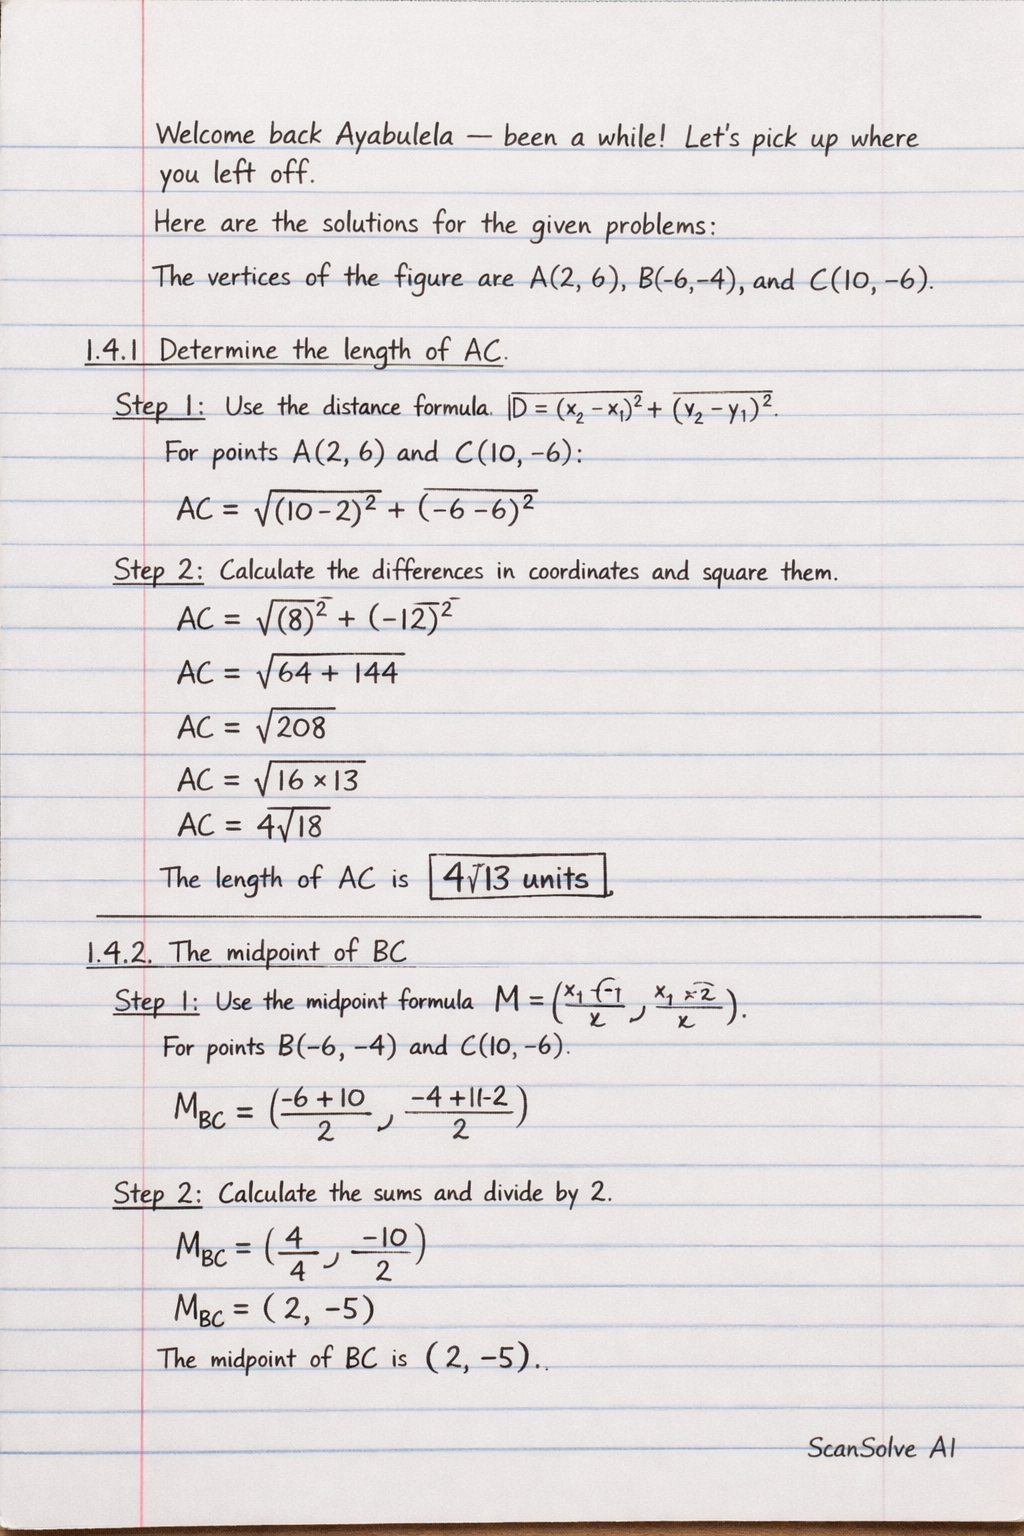 Welcome back Ayabulela — been a while! Let's pick up where
you left off.
Here are the solutions for the given problems:
The vertices of the figure are A(2, 6), B(-6,-4), and C(10, -6).
1.4.1 Determine the length of AC.
Step 1: Use the distance formula. D = (x₂ - x₁)² + (y₂ - y₁)².
For points A(2, 6) and C(10, -6):
AC = √(10-2)² + (-6-6)²
Step 2: Calculate the differences in coordinates and square them.
AC = √(8)² + (-12)²
AC = √64 + 144
AC = √208
AC = √16 × 13
AC = 4√18
The length of AC is 4√13 units
1.4.2. The midpoint of BC
Step 1: Use the midpoint formula M =
For points B(-6, -4) and C(10, -6).
M_BC = (-6+10/2, -4+11-2/2)
Step 2: Calculate the sums and divide by 2.
M_BC = (4/4, -10/2)
M_BC = (2, -5)
The midpoint of BC is (2, -5)..
ScanSolve AI